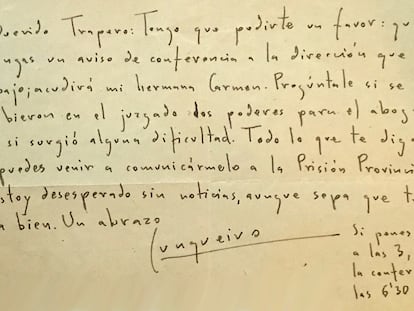 uerido Trapero: Tengo que pedirte un favor: qu
ngas un aviso de conferencia a la dirección que
bajo; acudirá mi hermana Carmen. Pregúntale si se
bieron en el juzgado los poderes para el abog
si surgió alguna dificultad. Todo lo que te diga
puedes venir a comunicármelo a la Prisión Provinci
stoy desesperado sin noticias, aunque sepa que t
a bien. Un abrazo
Cunqueiro
Si pones
a las 3,
la confer
las 6'30